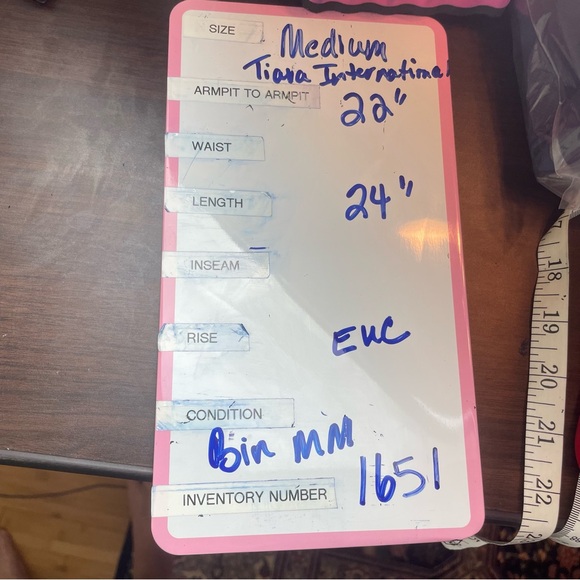 SIZE Medium
Tiara International
ARMPIT TO ARMPIT 22"
WAIST
LENGTH 24"
INSEAM
RISE EUC
CONDITION
Bin MM
INVENTORY NUMBER 1651
17
18
19
20
21
22